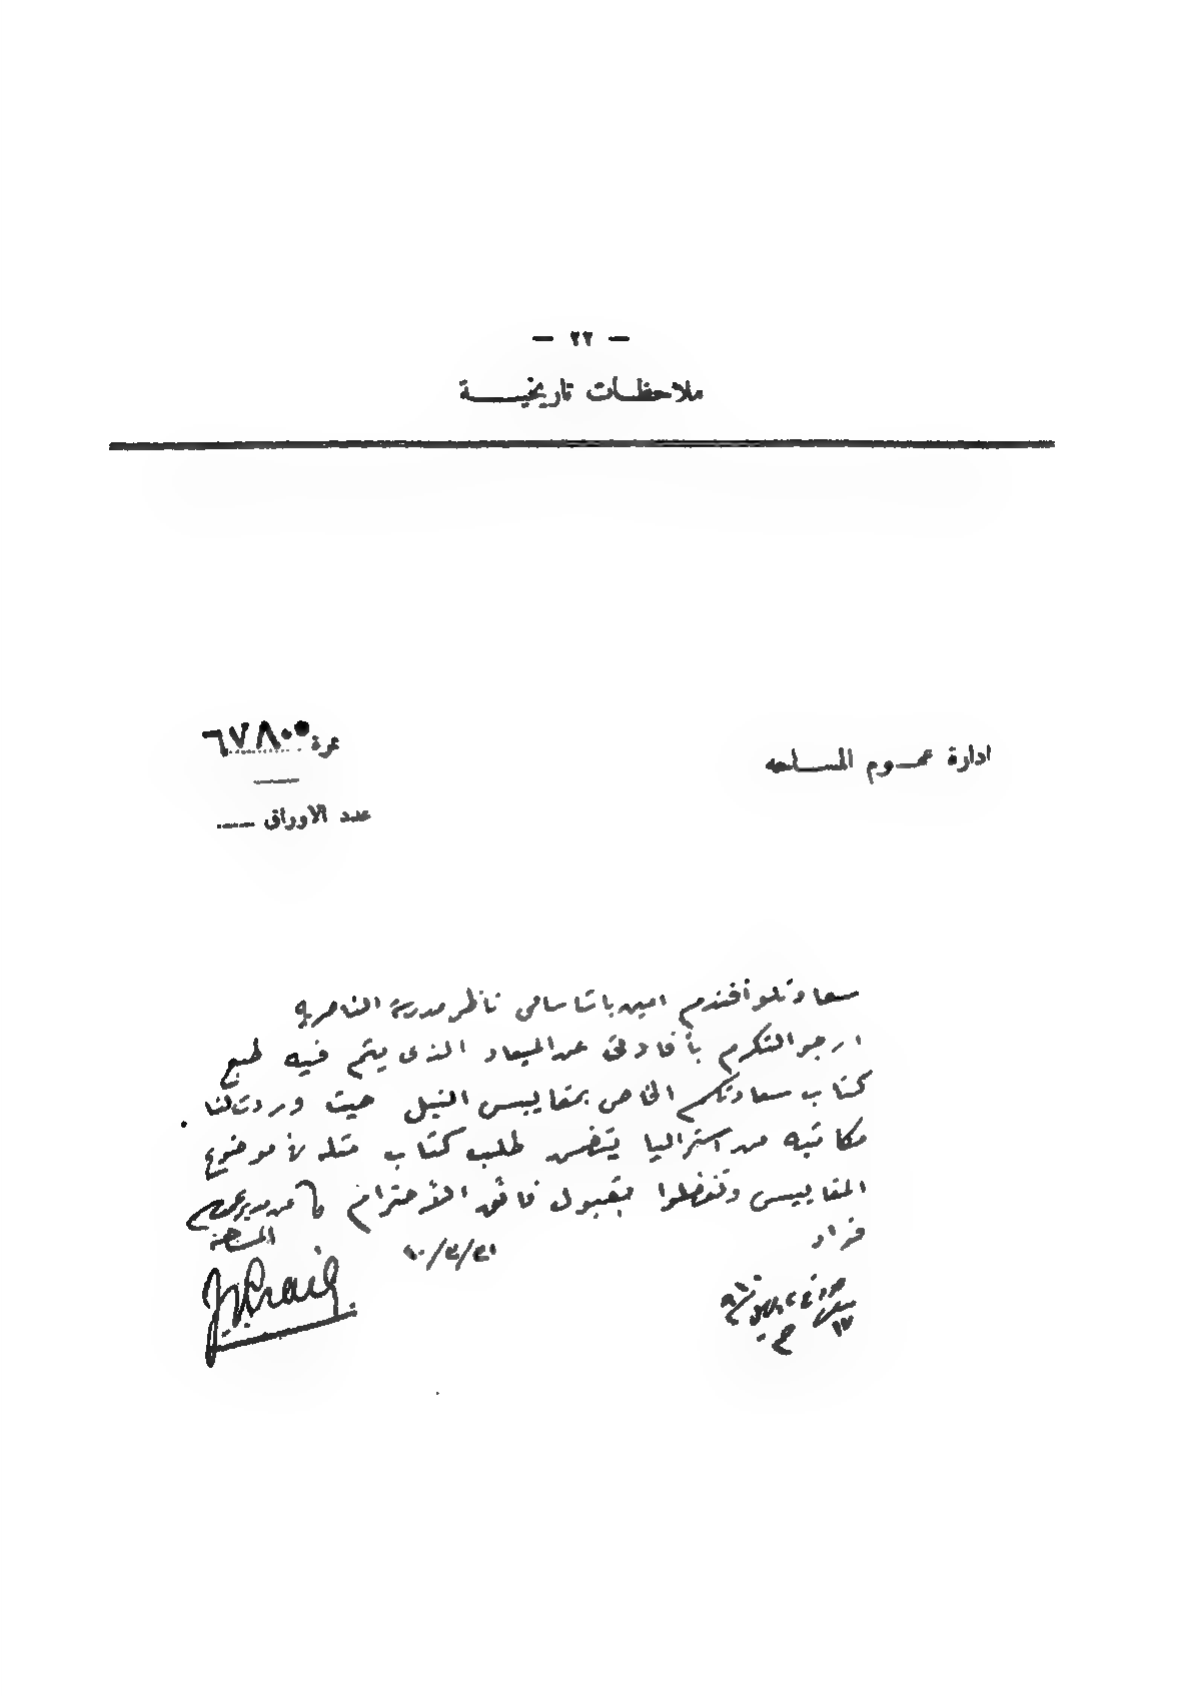 — ٢٢ —
ملاحظات تاريخية
ادارة عموم المساحه
نمرة ٦٧٨٠٥
عدد الاوراق
سعادتلو أفندم امين باشا سامى ناظر مدرسة الناصرية
ارجو التكرم بأفادتى عن الميعاد الذى يتم فيه طبع
كتاب سعادتكم الخاص بمقاييس النيل حيث وردت لنا
مكاتبه من استراليا يتضمن طلب كتاب مثله فى موضوع
المقاييس وتفضلوا بقبول فائق الأحترام عن مدير عموم
المساحة